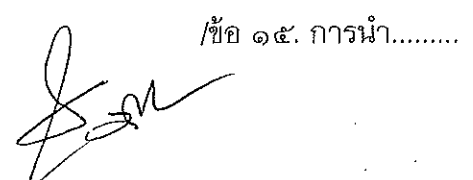 /ข้อ ๑๕. การนำ.........